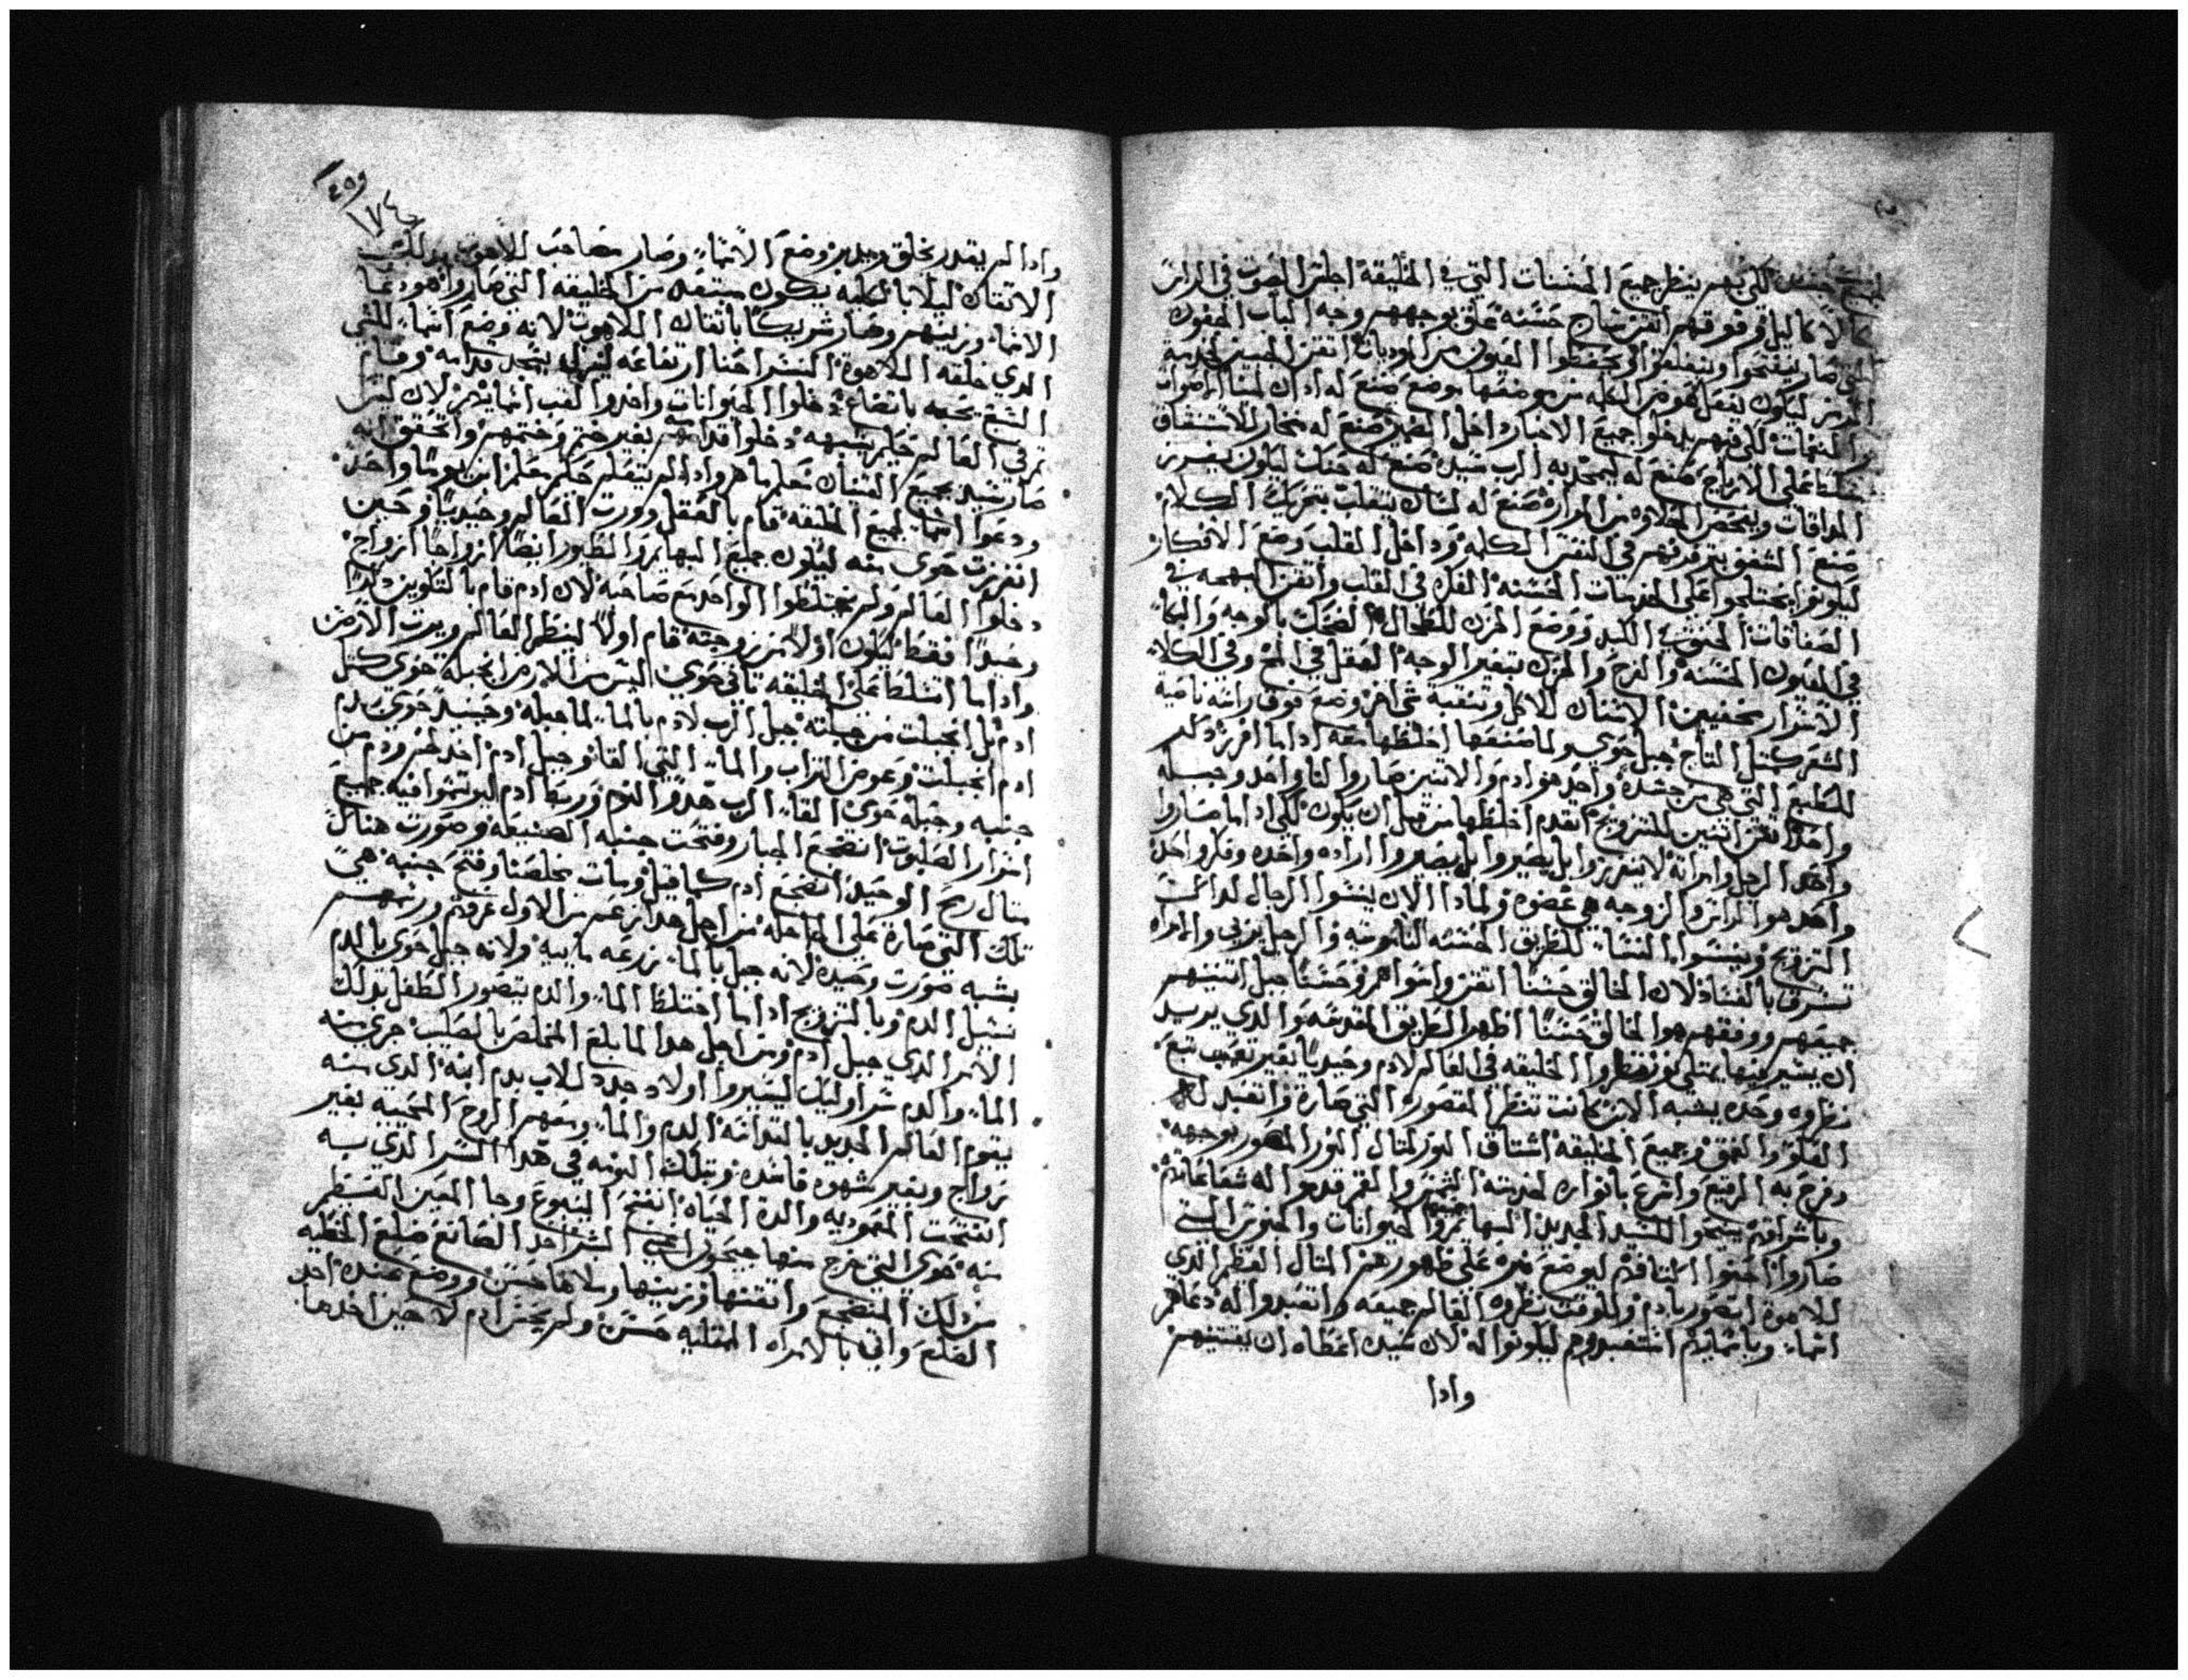 حسنة لكي بهم ينظر جميع الحسنات التي في الخليقة اجلس الصوت في الراس
كالاكاليل وفوقهم اتقن سياج حسنه علق بوجههم وجه الباب الجفون
التي صار ينفتحوا وينغلقوا ويحفظوا العيون من الاوديات اتقن الجبين لخدمة
الرمز ليكون لفعل عوض الكلمه من موضعها بوضع صنع له ادان لسماع الاصوات
والنغمات لكي فيهم يدخلوا جميع الاخبار داخل الضمير صنع له منخار للاستنشاق
على الارياح صنع له ليمجد به الرب سيده صنع له حنك ليكون يفرز
المداقات ويفحص الحلاوه من المراره صنع له لسان يتقلب بتحريك الكلام
صنع الشفق بفرقهم في النفس الكلمه وداخل القلب وضع الافكار
ليكونوا يختلجوا على الخفيات الحسنه الفكر في القلب واتقن البهجه في
الصفاقات الحنوه في الكبد ووضع الحزن للطحال الضحك بالوجه والبكاء
في العيون الحسنه والفرح والحزن بتغير الوجه العقل في المخ وفي الكلا
الاسرار مخفيين الاسنان للاكل وتنقية شي اخر وضع فوق راسه ناصية
الشعر كمثل التاج جبل حوي ولما صنعها اخلطها معه اداما افرز دلك
للطبع التي هي من جسده واحد هو ادم والاتنين صاروا لنا واحد وجبله
واحدا اتقن اتنين للتزويج اتقدم اخلطها من قبل ان يكون لكي اداما صاروا
واحد الرجل وامراته لا يتفرزوا بل يصيروا بل يصيروا اراده واحده وفكر واحد
واحد هو الراس والزوجه هي عضوه ولمادا الان ينسوا الرجال لداكت
التزويج وينسوا النساء للطريق الحسنه الناموسيه والرجل يزني والمراه
تسرف بالفساد لان الخالق حسنا اتقن واسواهم وحسنا جبل اتنينهم
جمعهم ووفقهم هو الخالق حسنا اظهر الطريق المقدسه والدي يريد
ان يسير فيها يمتلي نور نظروا الخليقه في العالم لادم وحيديا بغير تعب تبع
نظروه وحده يشبه الابن كانت تنظر المقصوره التي صارة واتعبد له
العلو والعمق وجميع الخليقه اشتاق النور لمتال النور المصور بوجهه
وفرح به الرقيع واسرع بانواره لخدمته الشمس والقمر قدموا له شعاعاتهم
وباشراقهم يسبحوا للسيد الجديد البهايم والحيوانات والحنوش التي
صاروا احنوا اكتافهم ليوضع نيره على ظهورهم المتال العظيم الدي
للاهوة اتصور بادم وللوقت نظروه العالم جميعه واتعبدوا له دعاهم
اسماء وباسمايهم استعبدوهم ليكونوا له لان سيده اعطاه ان يقتنيهم
وادا
وادا لم يقدر يخلق وضع الاسماء وصار مصاحب للاهوت بدلك
الاتقان ليلا بالكليه يكون مبتعد من الخليقه التي صاروا هو دعا
الاسماء وزينهم وصار شريكا باتقان اللاهوت لانه وضع اسماء للشي
الدي خلقه اللاهوة النسر احنا ارتفاعه لينزل يسجد قدامه وقام
السبع يحبه باتضاع دخلوا الحيوانات واخدوا لقب اسمايهم لان ليس
في العالم حكيم يشبهه دخلوا قدامه بغير ختم وختمهم واتحقق انه
صار سيد جميع القنيان معلم ماهر وادا لم يتعلم حكيم معلم ابن يوما واحد
ودعوا اسماء لجميع الخليقه قام بالعقل وورت العالم وحيديا وحين
انفرزت حوى منه ليكون جميع البهايم والطيور ايضا ازواجا ازواج
دخلوا العالم ولم يختلطوا الواحد مع صاحبه لان ادم قام بالتكوين دكرا
وحيدا فقط ليكون اولا من زوجته قام اولا لينظر العالم ويرت الارض
واداما اتسلط على الخليقه تاتي حوي اليس من الارض انجبلة حوى كمتل
ادم بل انجبلت من جبلته جبل الرب لادم بالماء لما جبله وحينيد حوي بدم
ادم انجبلت وعوض التراب والماء التي القاه وجبل ادم اخد ضلع ودم من
جنبه وجبله حوى القاء الرب هدو النوم وربط ادم ليرتسموا فيه جميع
اسرار الصلبوت اتضجع الجبار وفتحت جنبه الصنيعه وصورت هناك
متال ربح الوحيد اتضجع ادم كما قيل ومات مخلصنا وفتح جنبه هي
تلك التي صارة على الجاجله من اجل هدا من الاول عروقهم ورسمهم
بشبه صورت وحيده لانه جبل بالماء زرعه بابيه ولانه جبل حوى بالدم
نسل الدم وبالتزويج اداما اختلط الماء والدم يتصور الطفل بدلك
الامر الدي جبل ادم ومن اجل هدا لما بلغ المخلص بالصليب جرى منه
الماء والدم سر اوليك ليصيروا اولاد جدد للاب بدم ابنه الدى منه
يقوم العالم الجديد بالقداسه الدم والماء ومعهم الروح المحييه بغير
زواج وبغير شهوه فاسده وبتلك النومه في هدا السر الدي به
اتفتحت المعموديه والدة الحياه انفتح الينبوع وجا المعين العظيم
منه حوي التي خرج منها جيحون البشر اخد الصانع ضلع الخطيه
من دلك المضجع واتقنها وزينها وملاها حسن ووضع عنده احد
الضلع واتي بالامراه الممتليه حسن ولم يحس ادم لا حين اخدها